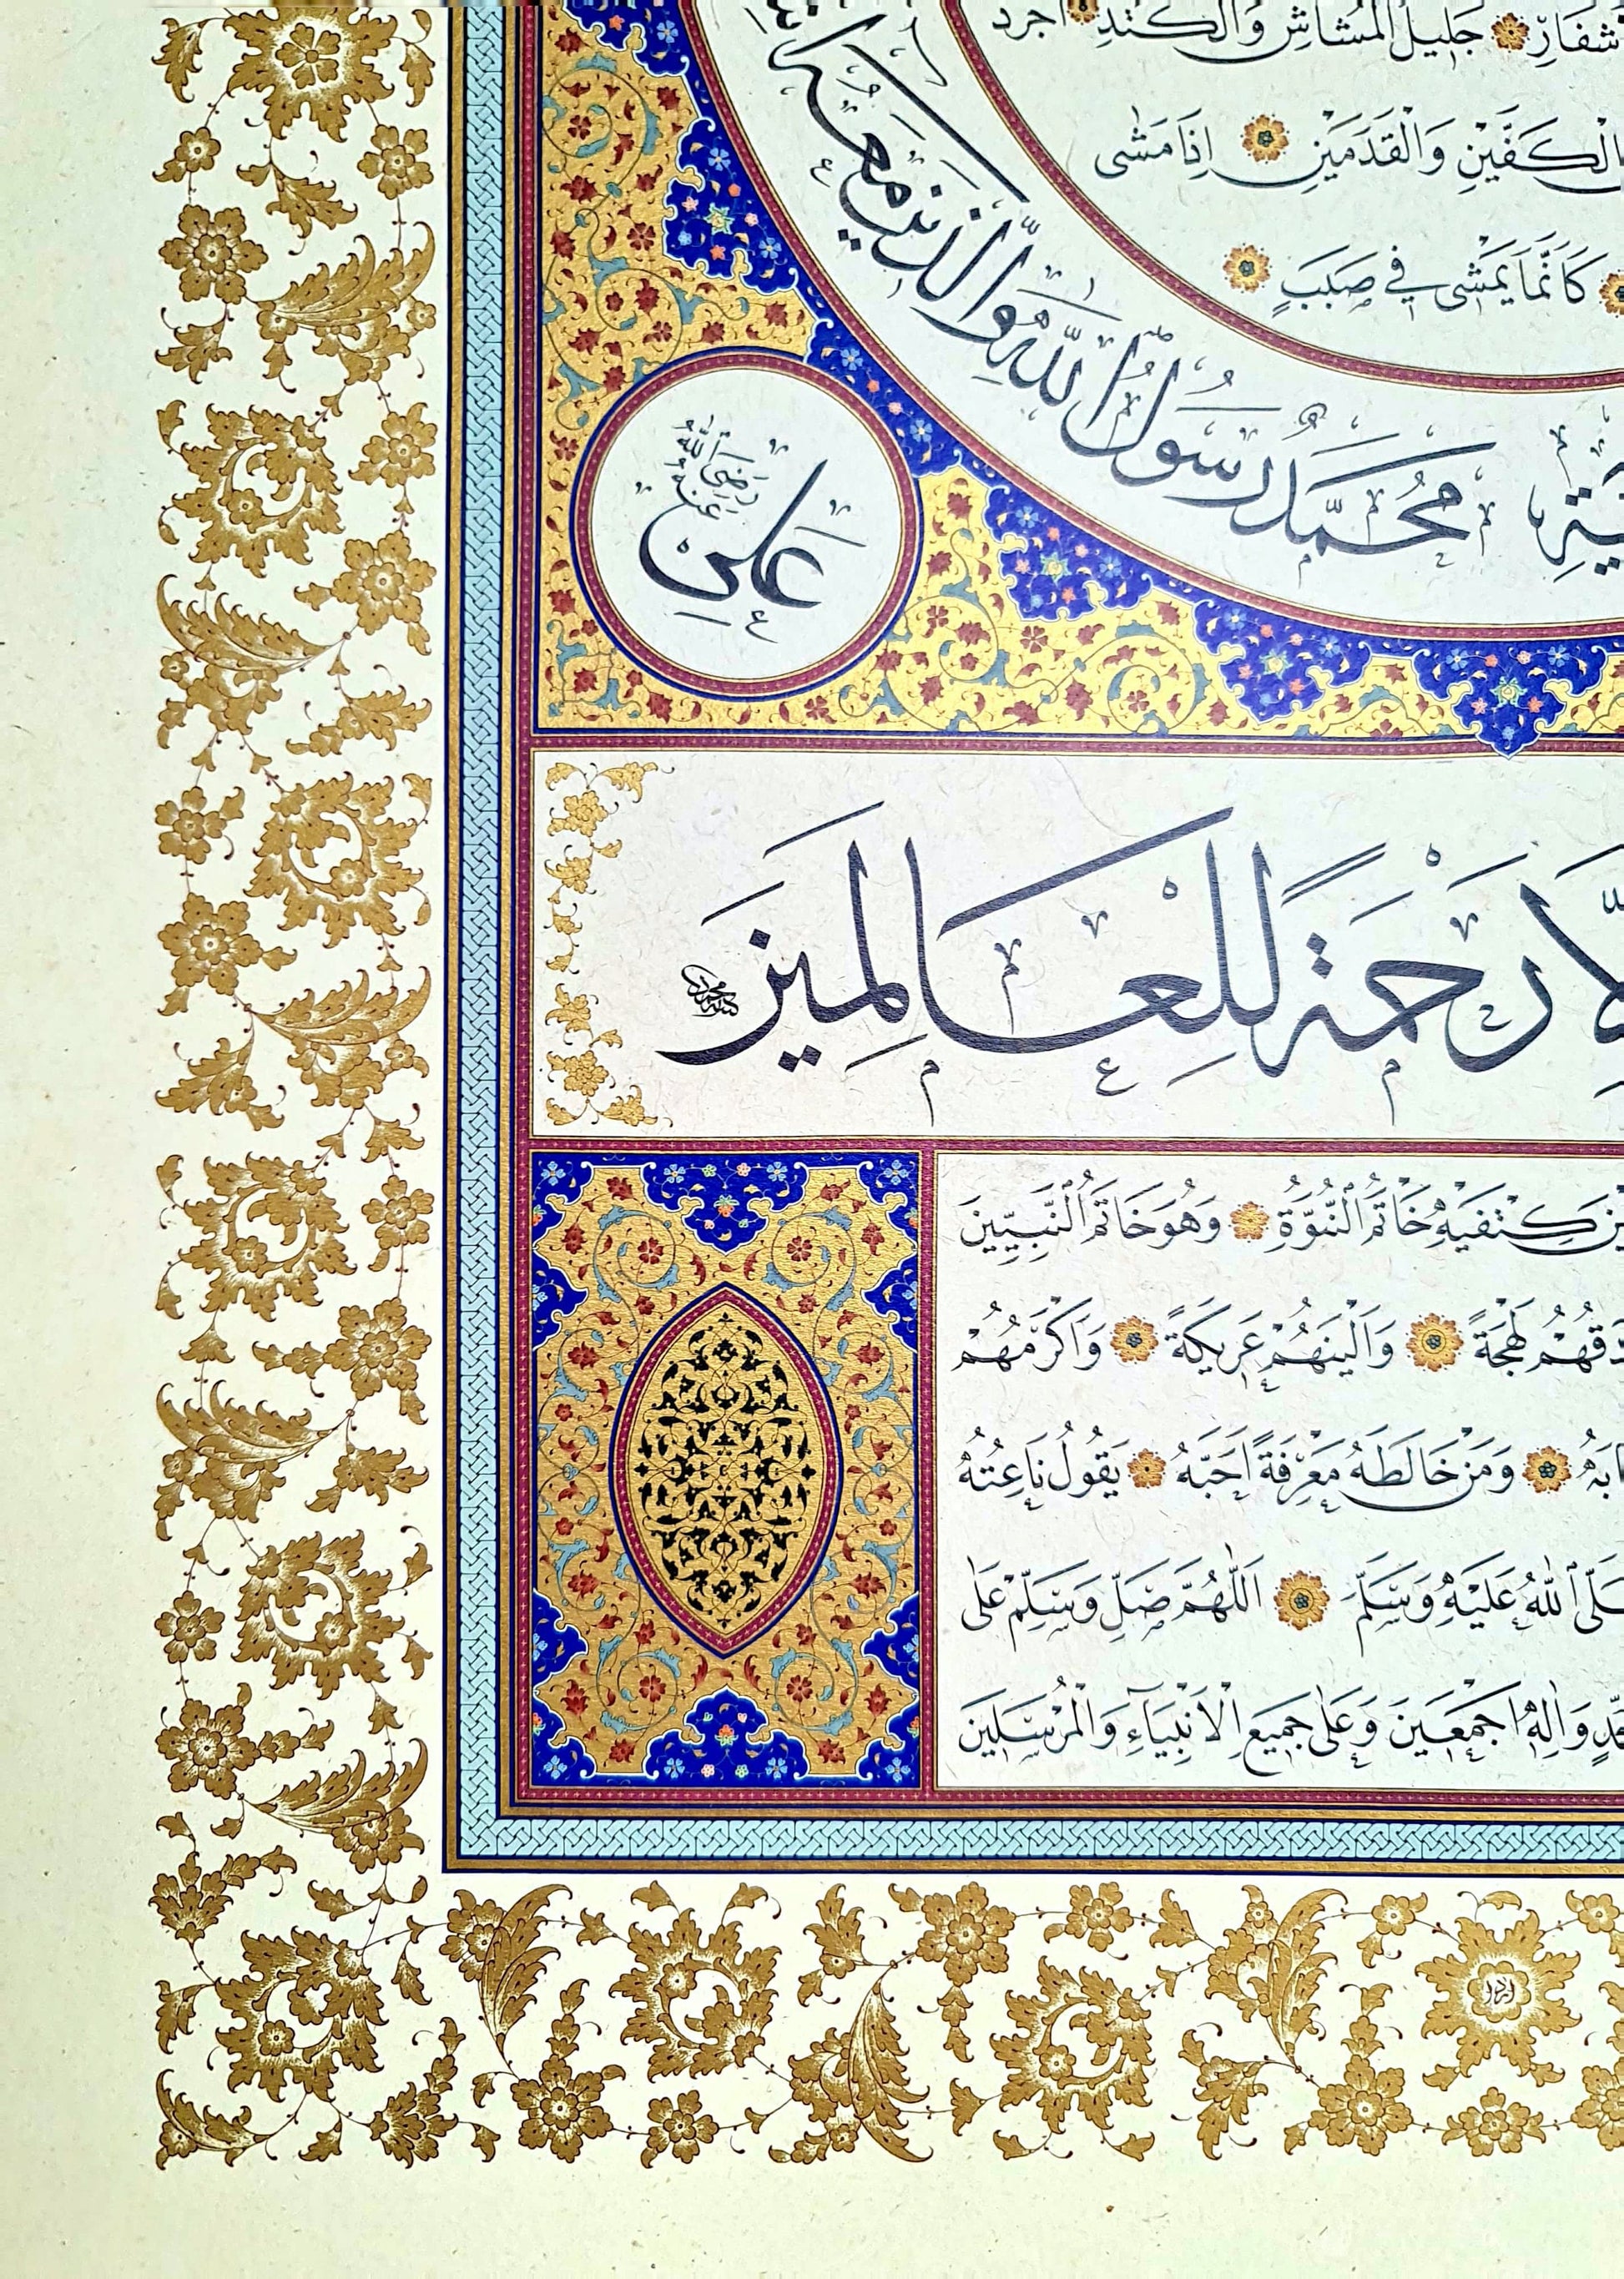 شْفَارِ جَلِيلُ الْمُشَاشِ وَالْكَتَدِ اَجْرَدُ
الْكَفَّيْنِ وَالْقَدَمَيْنِ اِذَا مَشٰى
كَاَنَّمَا يَمْشٖى فٖى صَبَبٍ
مُحَمَّدٌ رَسُولُ اللّٰهِ وَالَّذٖينَ مَعَهُ
عَلِيّ
رَضِيَ اللّٰهُ عَنْهُ
اِلَّا رَحْمَةً لِلْعَالَمِينَ
بَيْنَ كَتِفَيْهِ خَاتَمُ النُّبُوَّةِ وَهُوَ خَاتَمُ النَّبِيّٖينَ
دَقُهُمْ لَهْجَةً وَاَلْيَنُهُمْ عَرٖيكَةً وَاَكْرَمُهُمْ
ابَهُ وَمَنْ خَالَطَهُ مَعْرِفَةً اَحَبَّهُ يَقُولُ نَاعِتُهُ
صَلَّى اللّٰهُ عَلَيْهِ وَسَلَّمَ اَللّٰهُمَّ صَلِّ وَسَلِّمْ عَلٰى
مَّدٍ وَاٰلِهٖ اَجْمَعٖينَ وَعَلٰى جَمٖيعِ الْاَنْبِيَاءِ وَالْمُرْسَلٖينَ